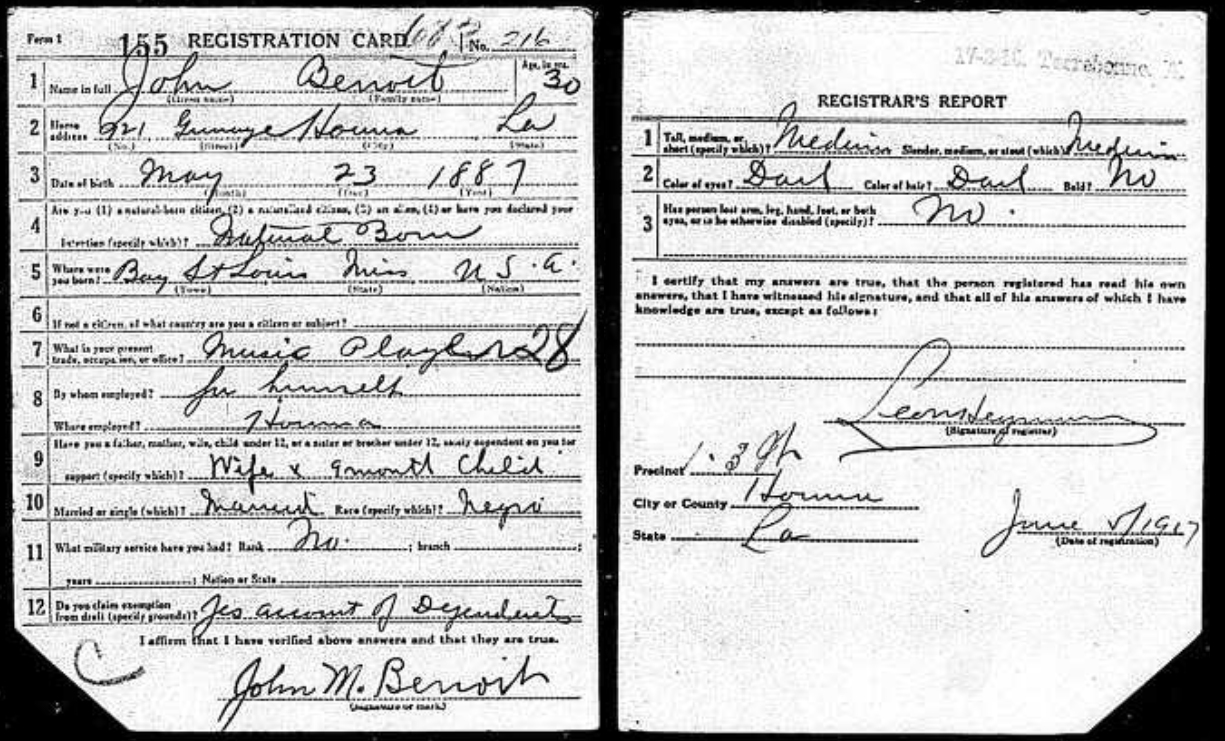 Form 1 155 REGISTRATION CARD No. 216
1 Name in full John Benoit Age, in yrs. 30
(Given name) (Family name)
2 Home address 221 Houma La
(No.) (Street) (City) (State)
3 Date of birth May 23 1887
(Month) (Day) (Year)
4 Are you (1) a natural-born citizen, (2) a naturalized citizen, (3) an alien, (4) or have you declared your
intention (specify which)? Natural Born
5 Where were you born? Bay St Louis Miss U.S.A.
(Town) (State) (Nation)
6 If not a citizen, of what country are you a citizen or subject?
7 What is your present trade, occupation, or office? Music Player 28
8 By whom employed? for himself
Where employed? Houma
9 Have you a father, mother, wife, child under 12, or a sister or brother under 12, solely dependent on you for
support (specify which)? Wife & 9 month Child
10 Married or single (which)? Married Race (specify which)? Negro
11 What military service have you had? Rank No. ; branch ;
years ; Nation or State
12 Do you claim exemption from draft (specify grounds)? Yes account of Dependents
I affirm that I have verified above answers and that they are true.
C
John M. Benoit
(Signature or mark)
17-3-16. Terrebonne. A.
REGISTRAR'S REPORT
1 Tall, medium, or short (specify which)? Medium Slender, medium, or stout (which)? Medium
2 Color of eyes? Dark Color of hair? Dark Bald? No
3 Has person lost arm, leg, hand, foot, or both eyes, or is he otherwise disabled (specify)? No.
I certify that my answers are true, that the person registered has read his own
answers, that I have witnessed his signature, and that all of his answers of which I have
knowledge are true, except as follows:
Leon Heymann
(Signature of registrar)
Precinct 1. 3
City or County Houma
State La
June 5/1917
(Date of registration)